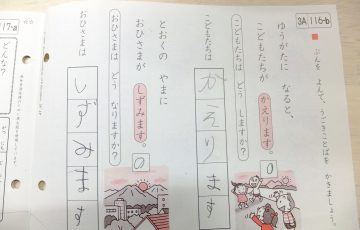 3A 116-b
ぶんを よんで、うごきことばを かきましょう。
ゆうがたに なると、
こどもたちが かえります。
0
こどもたちは どう しますか?
こどもたちは
かえります
とおくの やまに
おひさまが しずみます。
0
おひさまは どう なりますか?
おひさまは
しずみます
117-a
どんな?